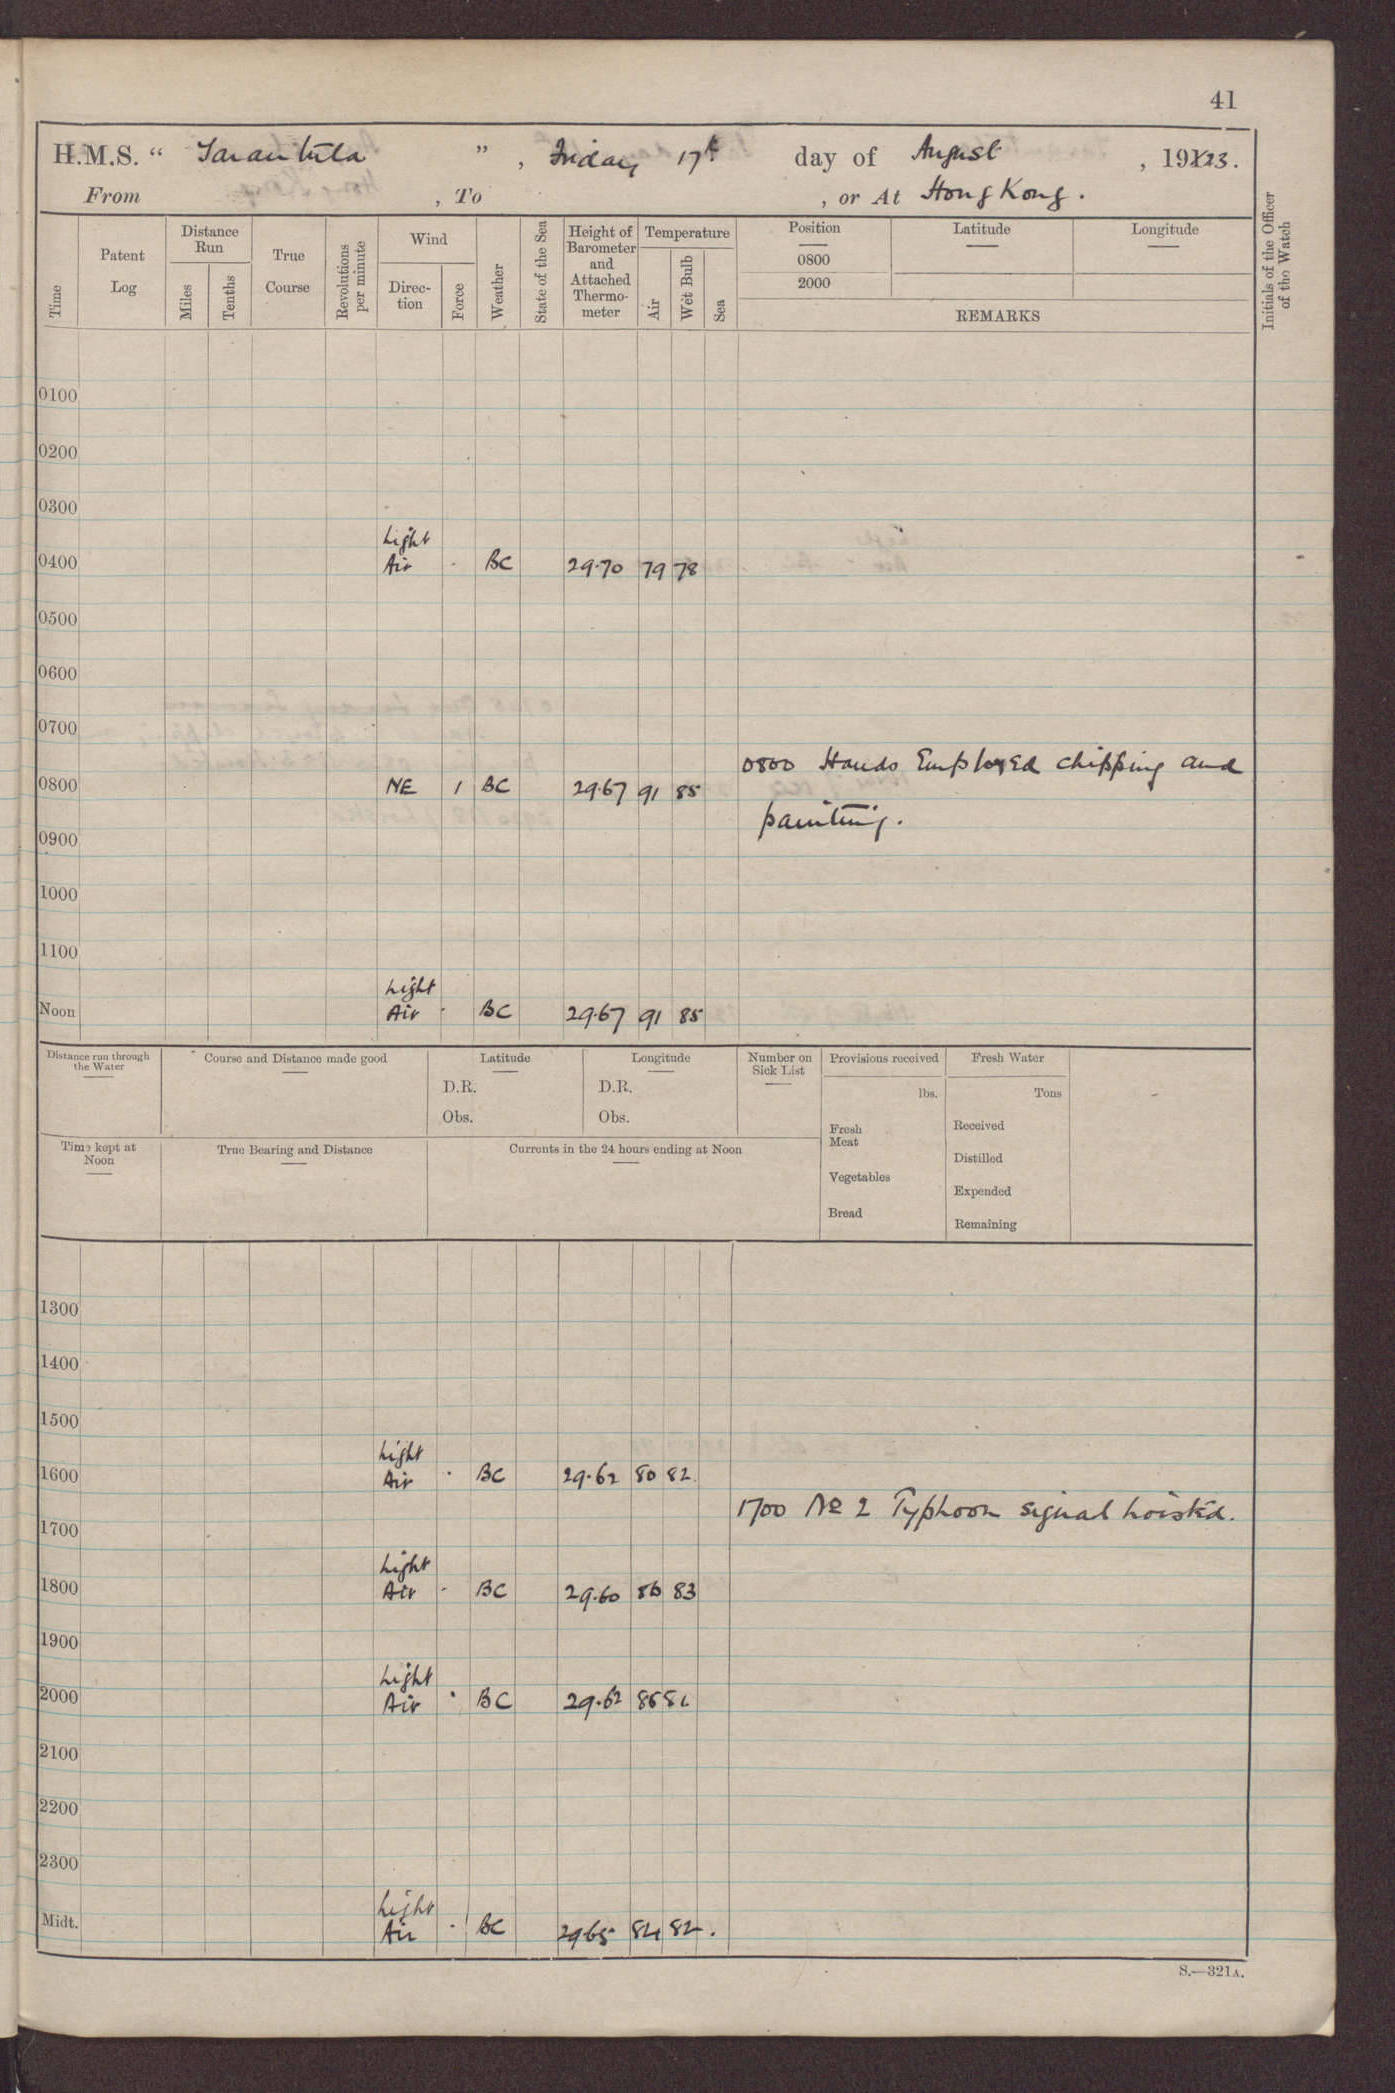 41
H.M.S. “ Tarantula ” , Friday 17th day of August , 1923.
From , To , or At Hong Kong.
Time
Patent Log
Distance Run
Miles
Tenths
True Course
Revolutions per minute
Wind
Direction
Force
Weather
State of the Sea
Height of Barometer and Attached Thermometer
Temperature
Air
Wet Bulb
Sea
Position
0800
2000
Latitude
Longitude
REMARKS
Initials of the Officer of the Watch
0100
0200
0300
Light
0400 Air . BC 29.70 79 78
0500
0600
0700
0800 Hands Employed chipping and
0800 NE 1 BC 29.67 91 85
painting.
0900
1000
1100
Light
Noon Air . BC 29.67 91 85
Distance run through the Water
Course and Distance made good
Latitude
D.R.
Obs.
Longitude
D.R.
Obs.
Number on Sick List
Provisions received
lbs.
Fresh Meat
Vegetables
Bread
Fresh Water
Tons
Received
Distilled
Expended
Remaining
Time kept at Noon
True Bearing and Distance
Currents in the 24 hours ending at Noon
1300
1400
1500
Light
1600 Air . BC 29.62 80 82
1700 No 2 Typhoon signal hoisted.
1700
Light
1800 Air . BC 29.60 86 83
1900
Light
2000 Air . BC 29.62 86
2100
2200
2300
Light
Midt. Air . BC 2965 84 82.
S.—321A.